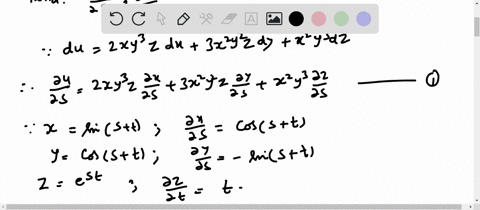 ∵ du = 2xy³z du + 3x²y²z dy + x²y³dz
∴ ∂u/∂s = 2xy³z ∂x/∂s + 3x²y²z ∂y/∂s + x²y³ ∂z/∂s ——— ①
∵ x = sin(s+t) ; ∂x/∂s = cos(s+t)
y = cos(s+t) ; ∂y/∂s = - sin(s+t)
z = e^st ; ∂z/∂t = t.